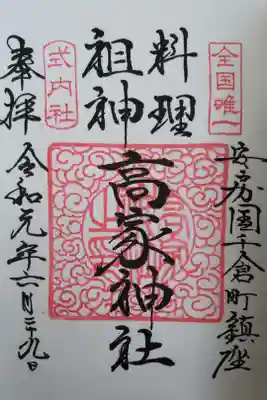 全国唯一
安房国千倉町鎮座
料理
祖神
高家神社
式内社
奉拝
令和元年六月二十九日